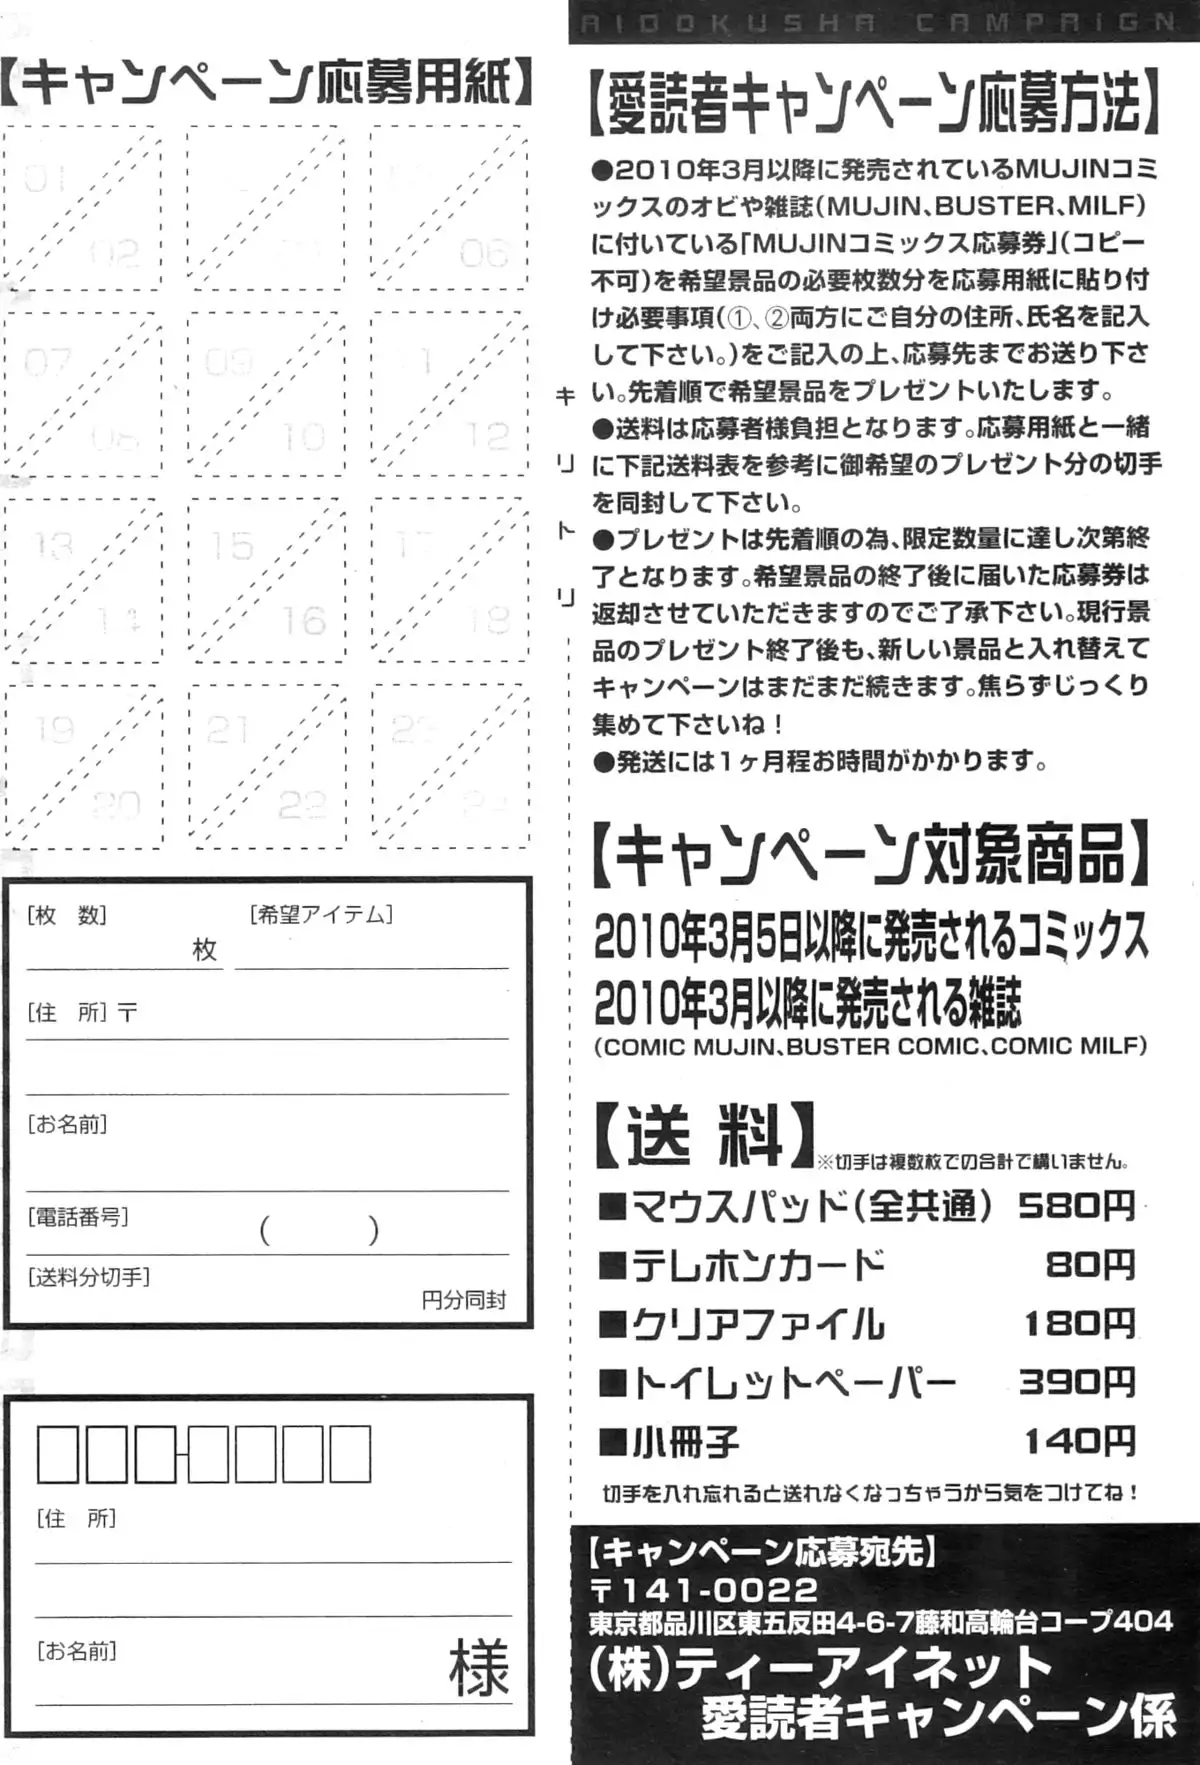 AIDOKUSHA CAMPAIGN
【キャンペーン応募用紙】
01
02
06
07
08
09
10
11
12
13
14
15
16
17
18
19
20
21
22
23
24
[枚　数]
枚
[希望アイテム]
[住　所]〒
[お名前]
[電話番号]
(　　　)
[送料分切手]
円分同封
[住　所]
[お名前]
様
キリトリ
【愛読者キャンペーン応募方法】
●2010年3月以降に発売されているMUJINコミ
ックスのオビや雑誌(MUJIN、BUSTER、MILF)
に付いている「MUJINコミックス応募券」(コピー
不可)を希望景品の必要枚数分を応募用紙に貼り付
け必要事項(①、②両方にご自分の住所、氏名を記入
して下さい。)をご記入の上、応募先までお送り下さ
い。先着順で希望景品をプレゼントいたします。
●送料は応募者様負担となります。応募用紙と一緒
に下記送料表を参考に御希望のプレゼント分の切手
を同封して下さい。
●プレゼントは先着順の為、限定数量に達し次第終
了となります。希望景品の終了後に届いた応募券は
返却させていただきますのでご了承下さい。現行景
品のプレゼント終了後も、新しい景品と入れ替えて
キャンペーンはまだまだ続きます。焦らずじっくり
集めて下さいね！
●発送には1ヶ月程お時間がかかります。
【キャンペーン対象商品】
2010年3月5日以降に発売されるコミックス
2010年3月以降に発売される雑誌
(COMIC MUJIN、BUSTER COMIC、COMIC MILF)
【送 料】※切手は複数枚での合計で構いません。
■マウスパッド(全共通) 580円
■テレホンカード 80円
■クリアファイル 180円
■トイレットペーパー 390円
■小冊子 140円
切手を入れ忘れると送れなくなっちゃうから気をつけてね！
【キャンペーン応募宛先】
〒141-0022
東京都品川区東五反田4-6-7藤和高輪台コープ404
(株)ティーアイネット
愛読者キャンペーン係